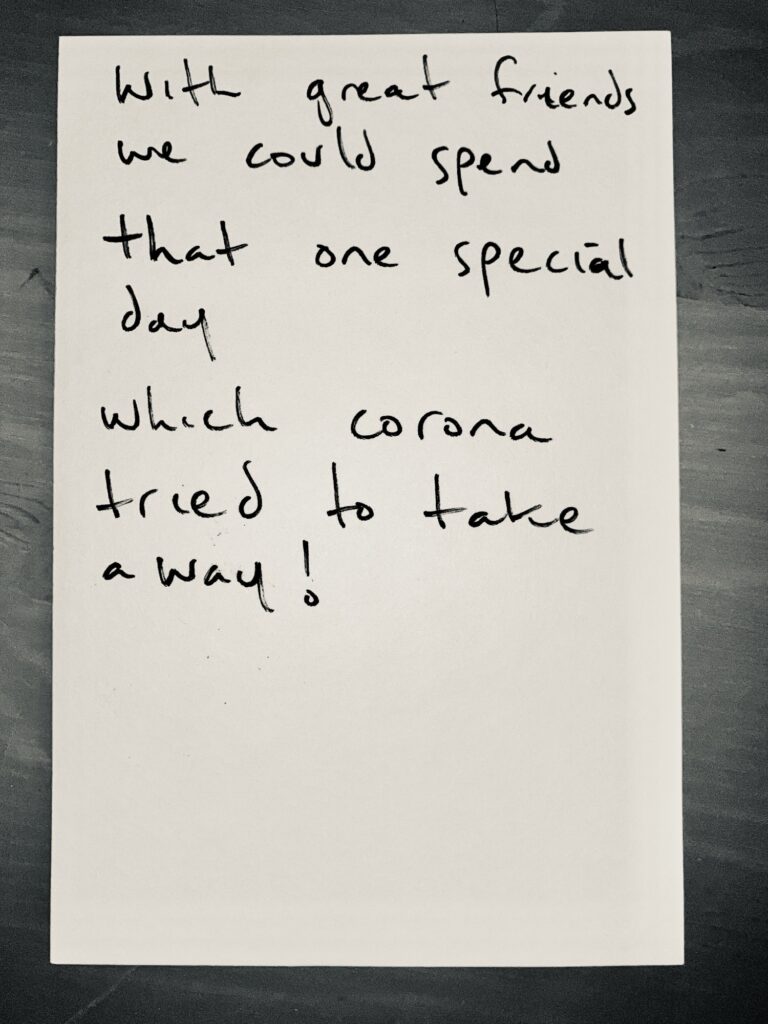 With great friends
we could spend
that one special
day
which corona
tried to take
away!